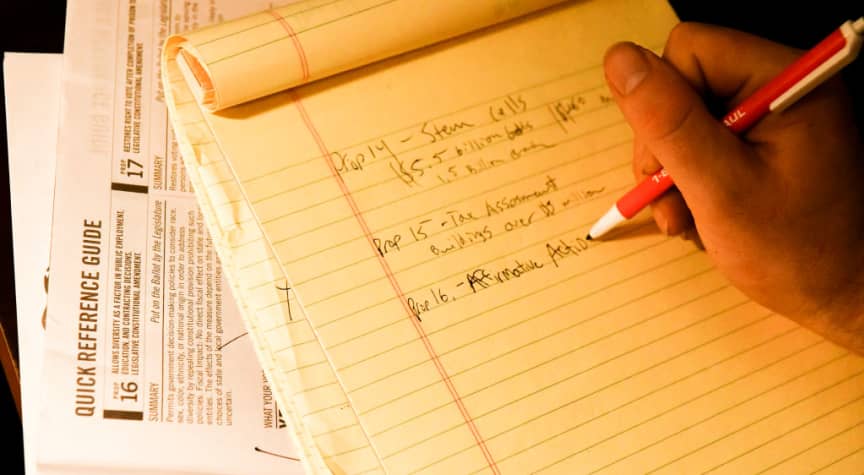 Prop 14 - Stem Cells
$5.5 billion
1.5 billion
Prop 15 - Tax Assessment
Buildings over $3 million
Prop 16. - Affirmative Activ
AUL
1-8
QUICK REFERENCE GUIDE
PROP
16
ALLOWS DIVERSITY AS A FACTOR IN PUBLIC EMPLOYMENT,
EDUCATION, AND CONTRACTING DECISIONS.
LEGISLATIVE CONSTITUTIONAL AMENDMENT.
SUMMARY
Put on the Ballot by the Legislature
Permits government decision-making policies to consider race,
sex, color, ethnicity, or national origin in order to address
diversity by repealing constitutional provision prohibiting such
policies. Fiscal Impact: No direct fiscal effect on state and
entities. The effects of the measure depend on the
choices of state and local government entities
uncertain.
WHAT YOUR
PROP
17
RESTORES RIGHT TO VOTE AFTER COMPLETION OF PRISON
LEGISLATIVE CONSTITUTIONAL AMENDMENT.
SUMMARY
Put on the Ballot by the Legislature
Restores voting